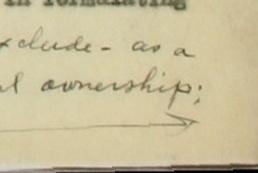 in formulating
xclude - as a
l ownership;